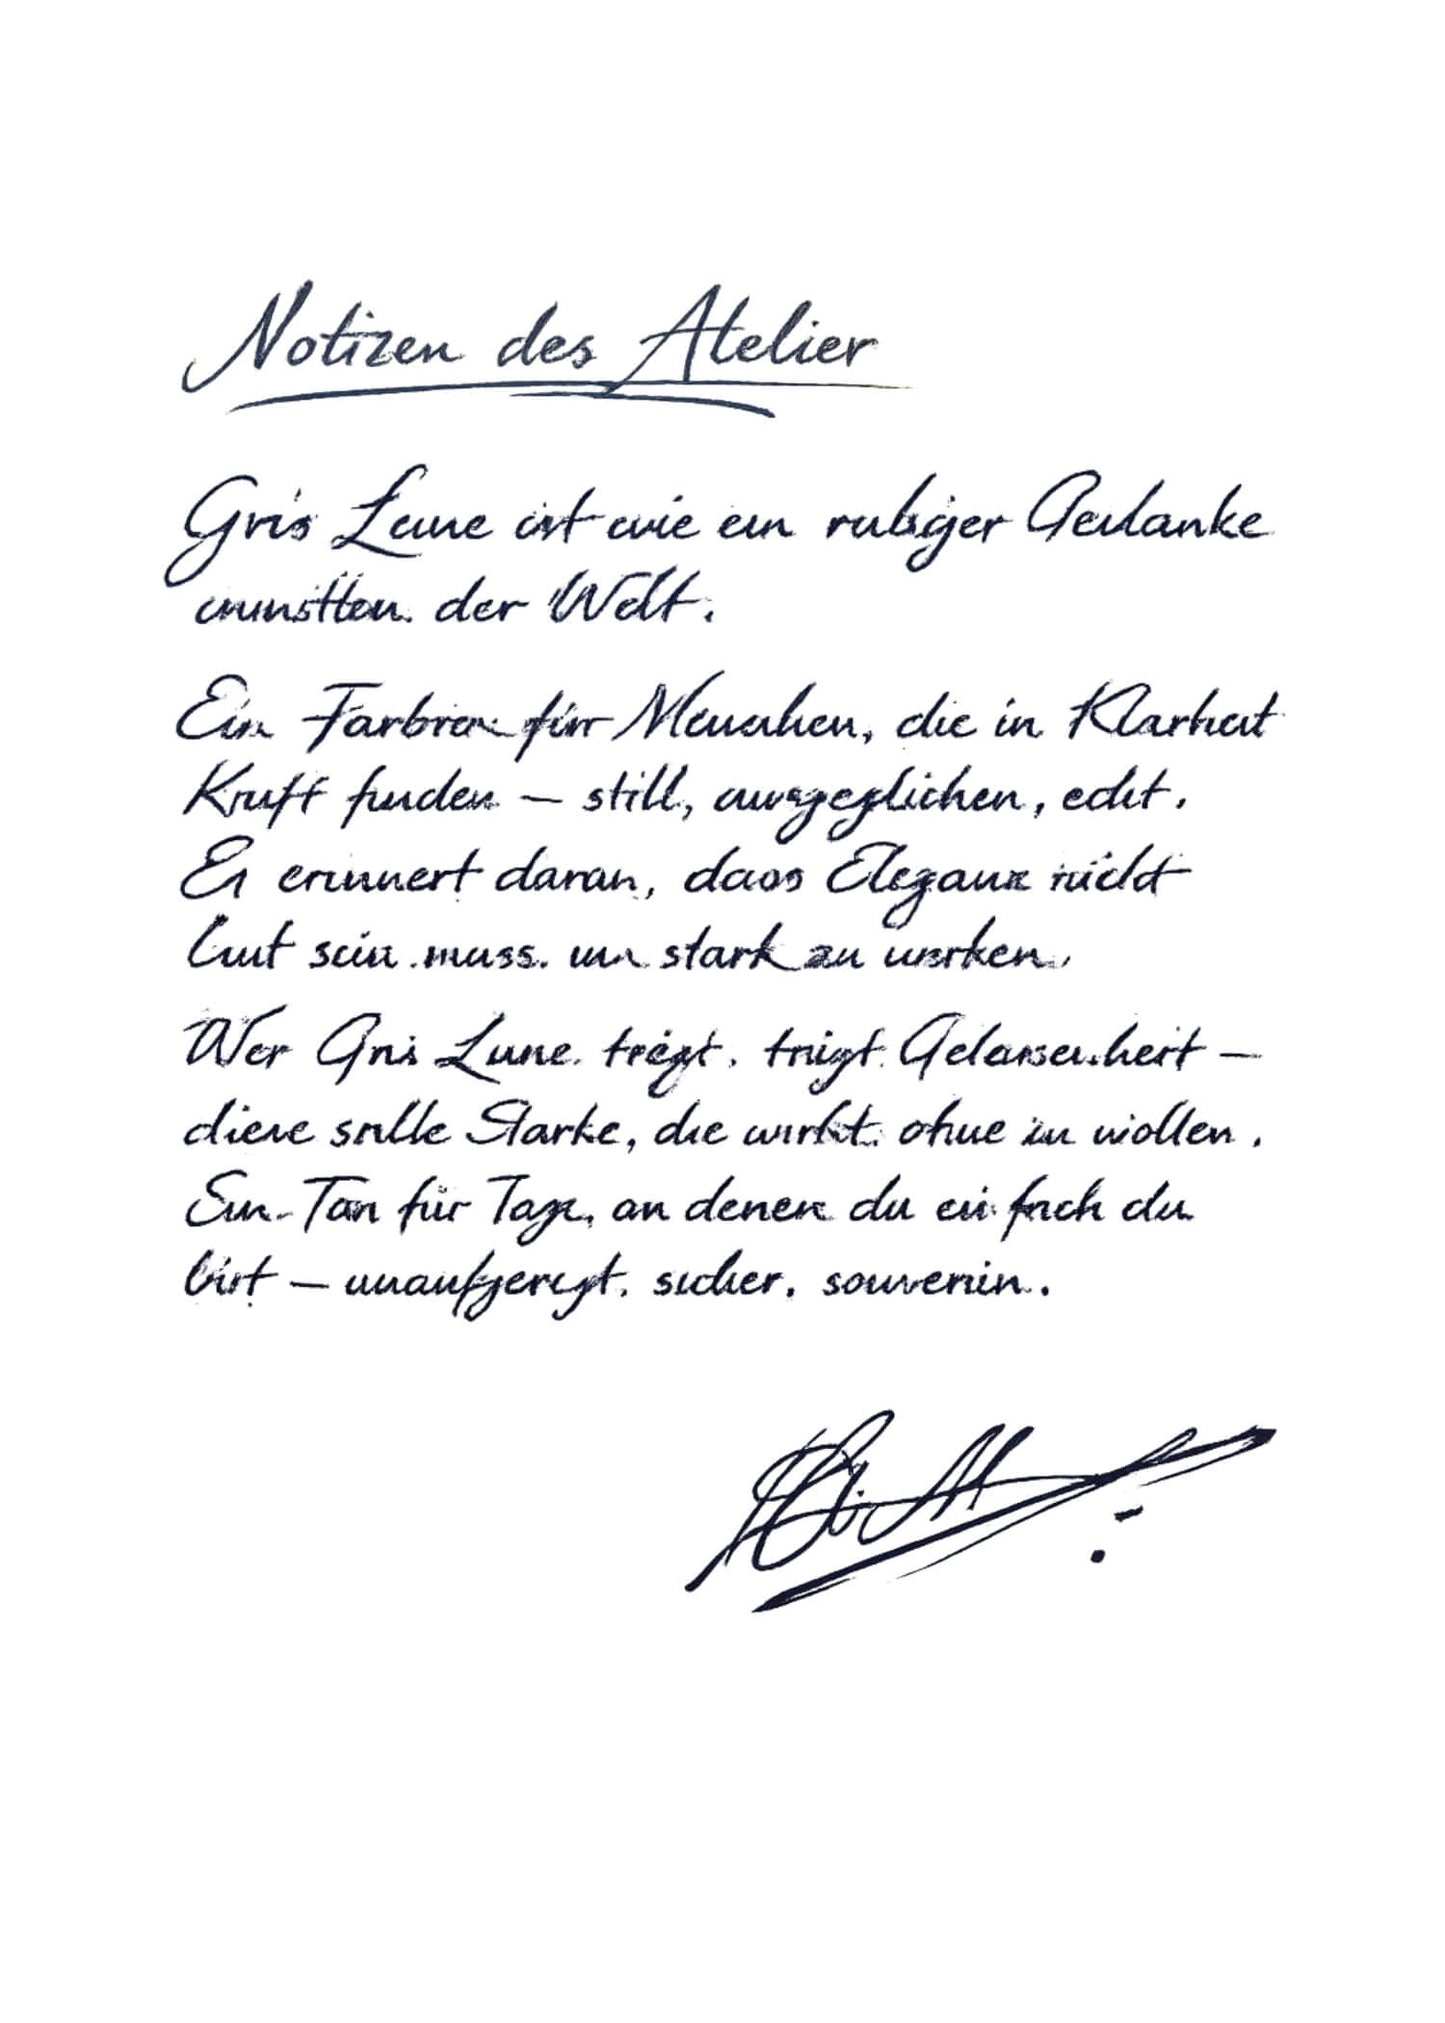 Notizen des Atelier
Gris Lune ist wie ein ruhiger Gedanke
inmitten der Welt.
Ein Farbton für Menschen, die in Klarheit
Kraft finden — still, ausgeglichen, echt.
Er erinnert daran, dass Eleganz nicht
laut sein muss. um stark zu wirken.
Wer Gris Lune trägt, trägt Gelassenheit —
diese stille Stärke, die wirkt, ohne zu wollen.
Ein Ton für Tage, an denen du einfach du
bist — unaufgeregt, sicher, souverän.